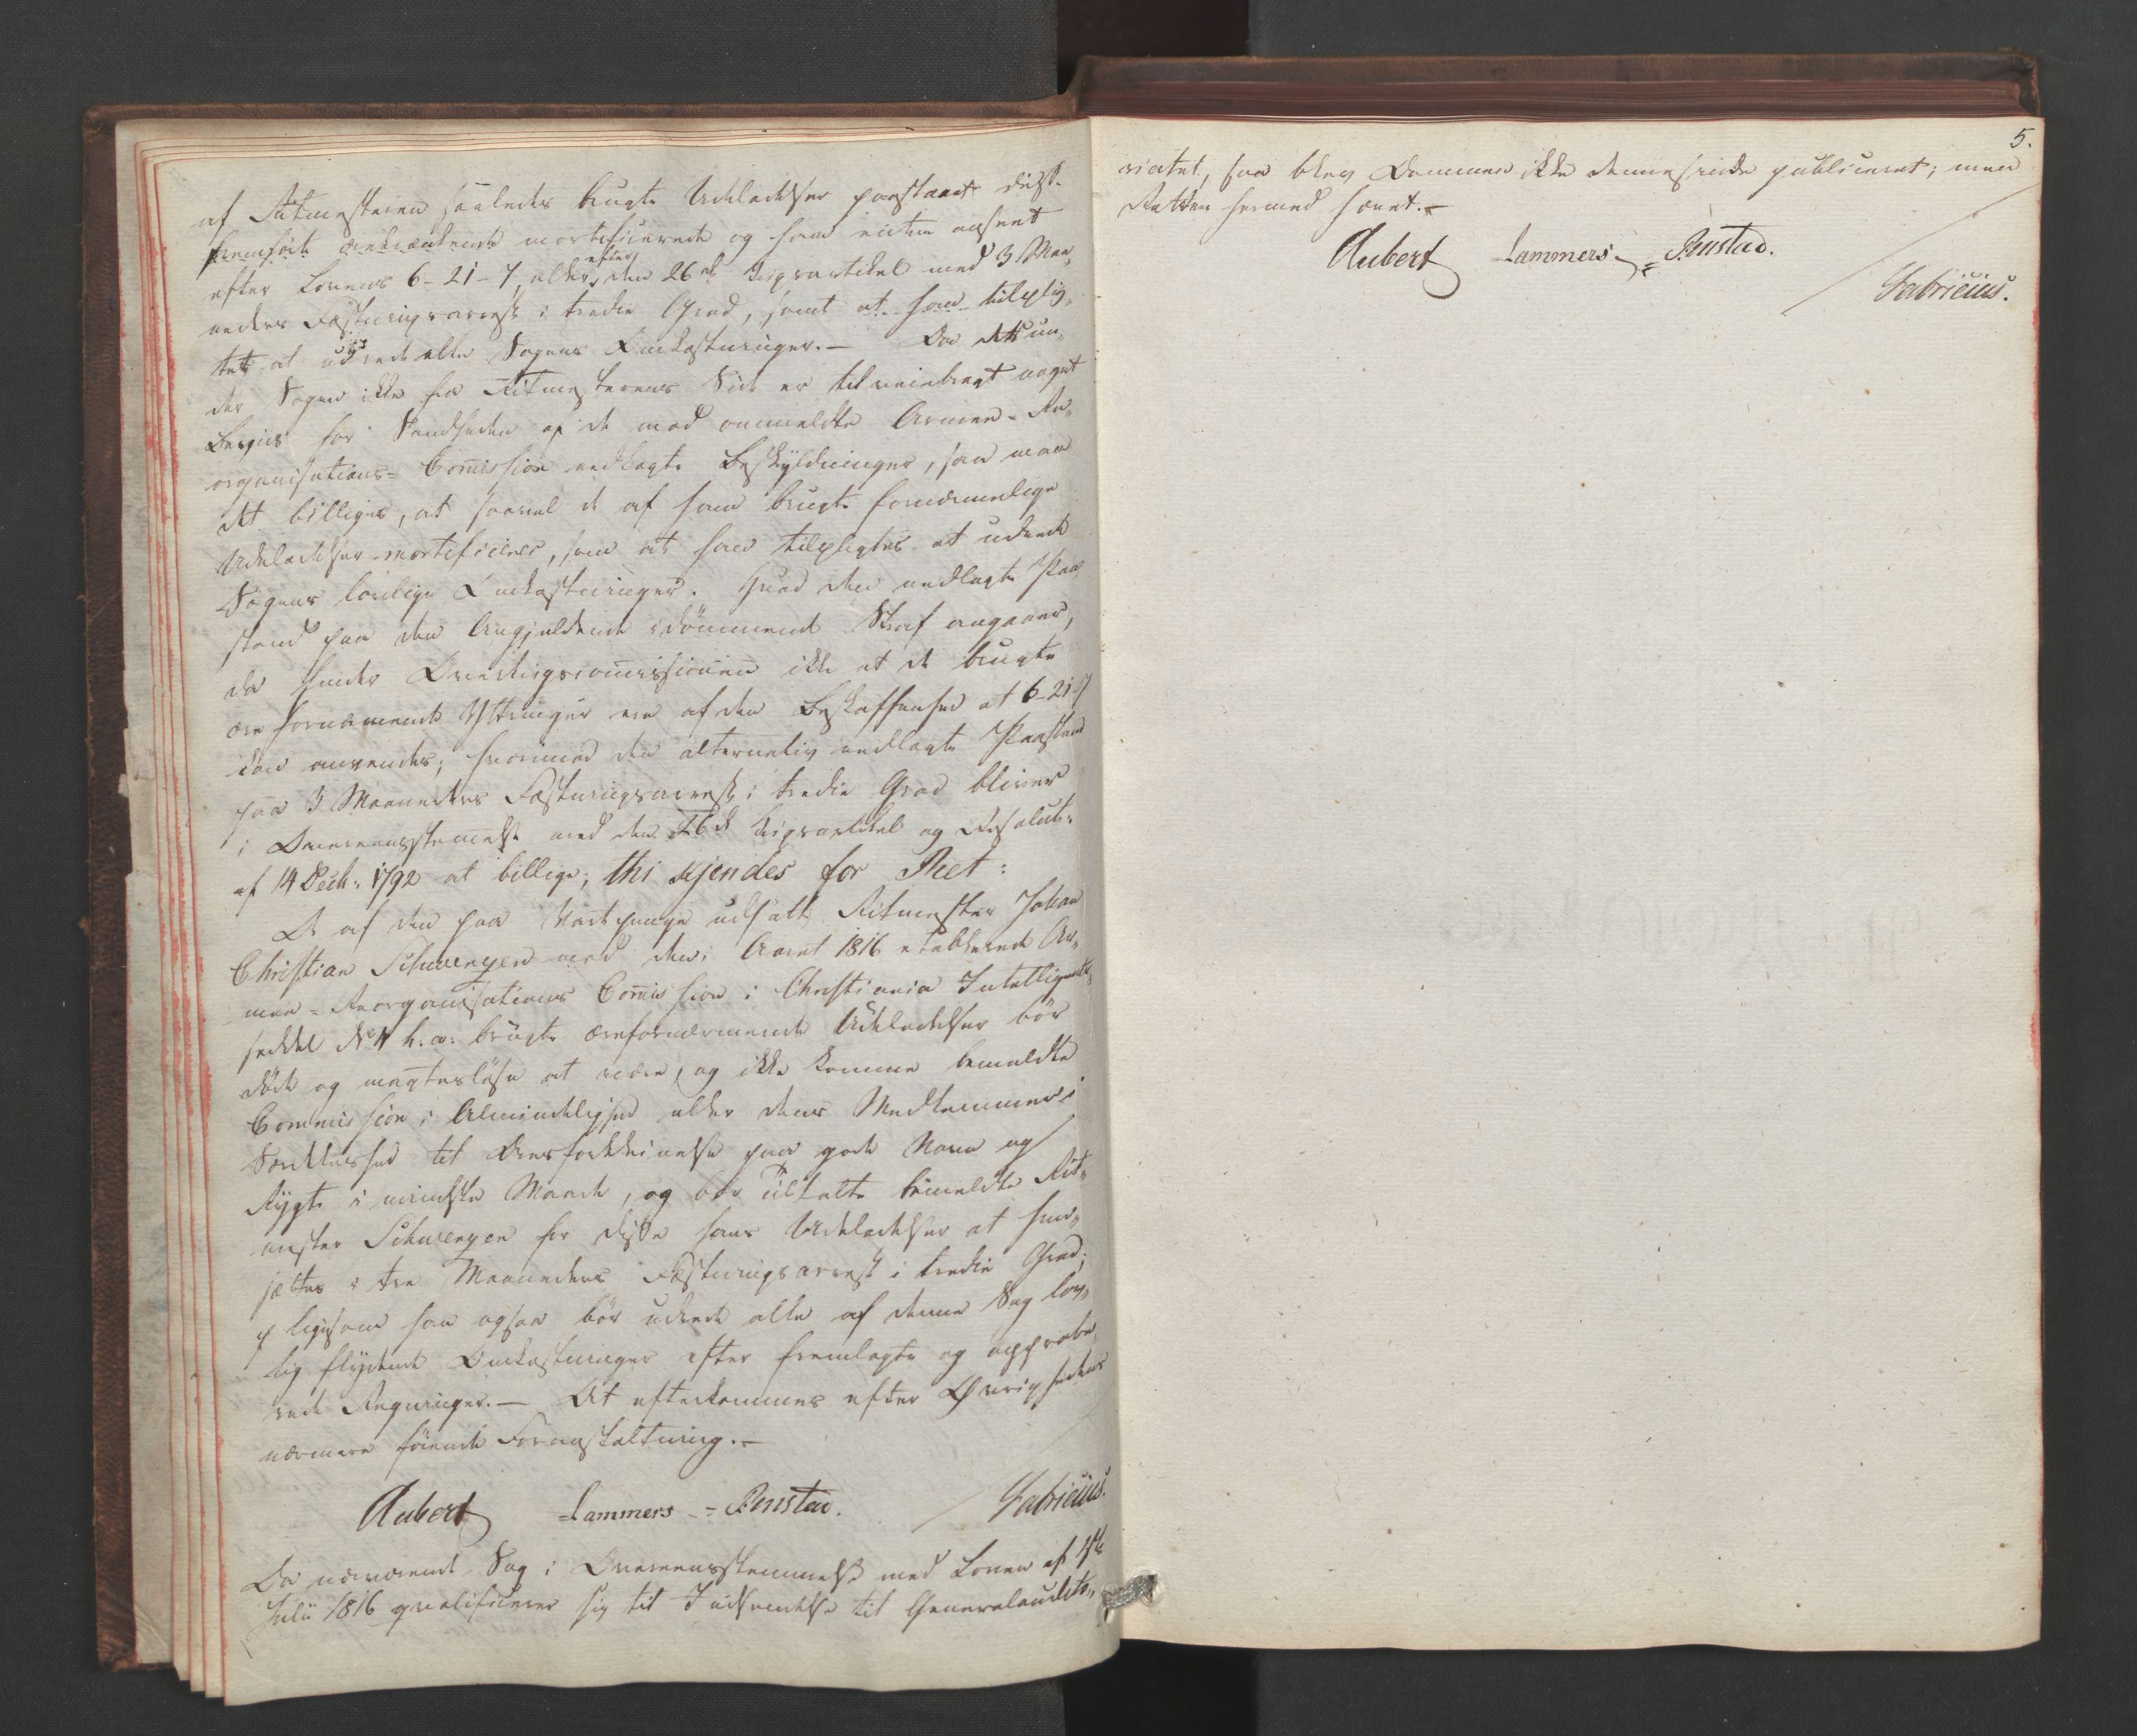 af Ritmesteren saaledes brugte Udladelser paastaaet disse
fremførte ærekrænkende mortificerede og ham enten anseet
efter Lovens 6-21-7, eller efter den 26de Krigsartikel med 3 Maa„
neders Fæstningsarrest i tredie Grad, samt at han tilplig„
tes at udrede alle Sagens Omkostninger.— Da det un„
der Sagen ikke fra Ritmesterens Side er tilveiebragt noget
Beviis for Sandheden af de mod ommeldte Armee-Re„
organisations-Commission nedlagte Beskyldninger, saa maa
det billiges, at saavel de af ham brugte fornærmelige
Udladelser mortificeres, som at han tilpligtes at udrede
Sagens lovlige Omkostninger. Hvad den nedlagte Paa
stand paa den Angjeldende idømmende Straf angaaer,
da finder Overkrigscommissionen ikke at de brugte
ære fornærmende Yttringer ere af den Beskaffenhed at 6-21-7
kan anvendes; hvorimod den alternativ nedlagte Paastand
paa 3 Maaneders Fæstningsarrest i tredie Grad bliver
i Overeensstemmelse med den 26de Krigsartikel og Resolut:
af 14 Decb: 1792 at billige; thi kjendes for Ret:
De af den paa Vartpenge udsatte Ritmester Johan
Christian Schwenzen mod den i Aaret 1816 etablerede Ar„
mee-Reorganisations Commission i Christiania Intelligents„
seddel No 4 h. a: brugte ærefornærmende Udladelser bør
døde og magtesløse at være, og ikke komme bemeldte
Commission i Almindelighed eller dens Medlemmer i
Særdeleshed til Æresforkleinelse paa gode Navn og
Rygte i mindste Maade, og bør tiltalte bemeldte Rit„
mester Schwenzen for disse hans Udladelser at hen„
sættes i tre Maaneders Fæstningsarrest i tredie Grad;
ligesom han ogsaa bør udrede alle af denne Sag lov„
lig flydende Omkostninger efter fremlagte og approbe„
rede Regninger.— At efterkommes efter Øvrighedens
nærmere føiende Foranstaltning.—
Aubert Lammers -=Rustad. Fabricius.
Da nærværende Sag i Overeensstemmelse med Loven af
Julii 1816 qvalificerer sig til Indsendelse til Generalaudito„
5.
riatet, saa blev Dommen ikke dennesinde publiceret; men
Retten hermed hævet.—
Aubert Lammers -=Rustad.
Fabricius.